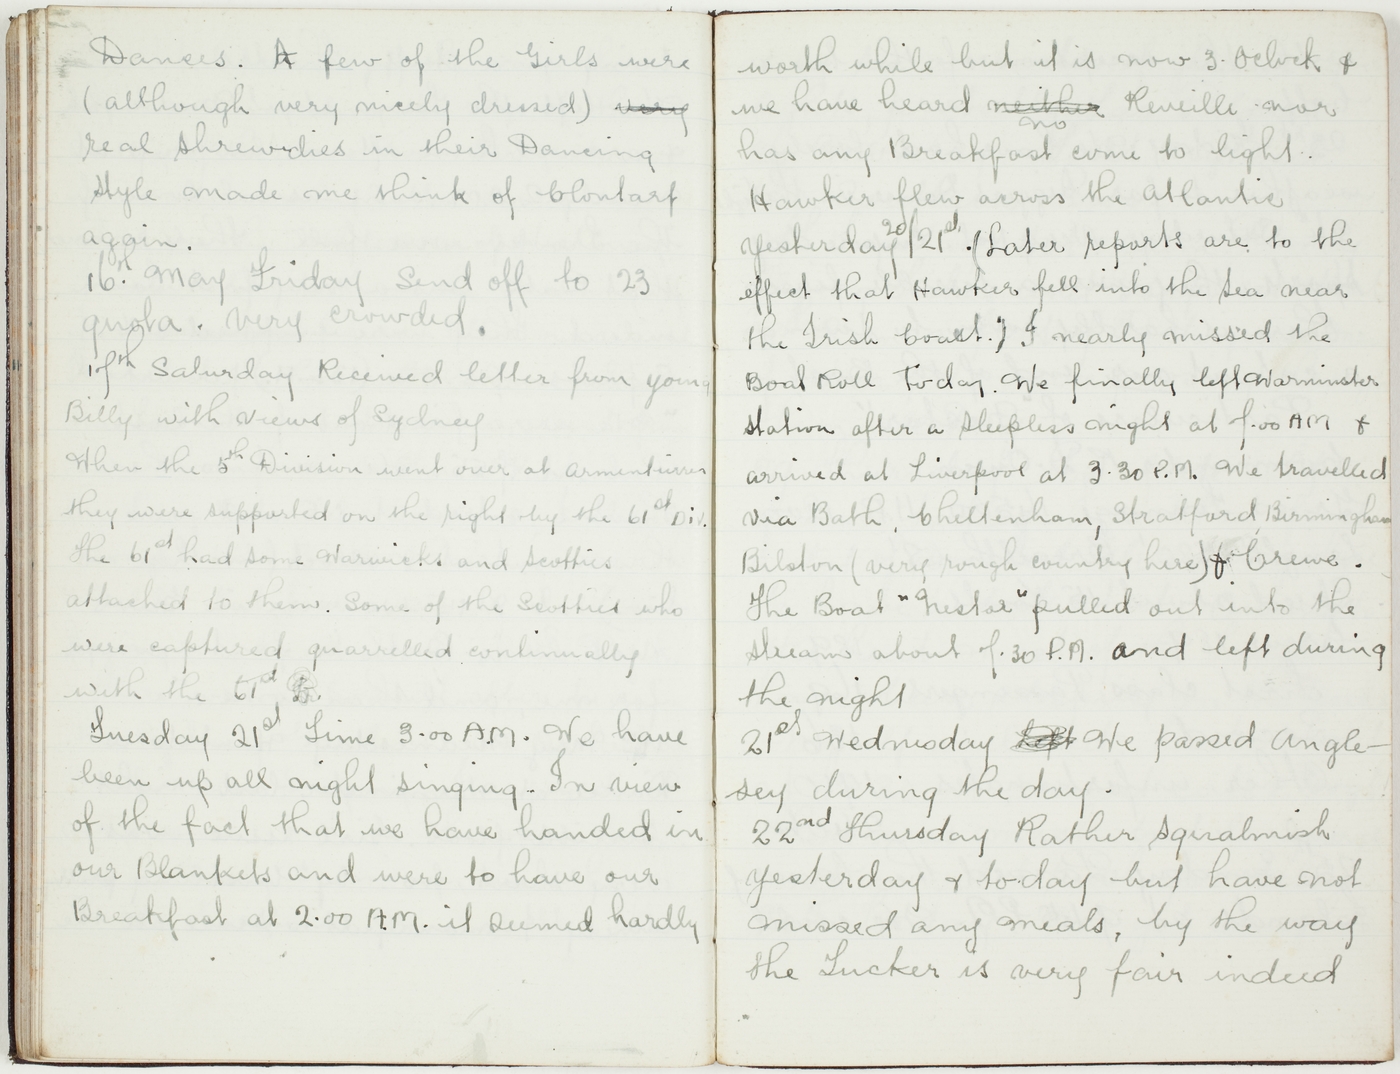 Dances. A few of the Girls were
(although very nicely dressed) very
real shrewdies in their Dancing
style made me think of Clontarf
again.
16th May Friday Send off to 23
quota. very crowded.
17th Saturday Received letter from young
Billy with views of Sydney
When the 5th Division went over at Armentieres
they were supported on the right by the 61st Div.
The 61st had some Warwicks and Scotties
attached to them. Some of the Scotties who
were captured quarrelled continually
with the 61st B.
Tuesday 21st Time 3.00 A.M. We have
been up all night singing. In view
of the fact that we have handed in
our Blankets and were to have our
Breakfast at 2.00 A.M. it seemed hardly
worth while but it is now 3. Oclock &
we have heard neither no Reveille nor
has any Breakfast come to light.
Hawker flew across the Atlantic
yesterday 20/21st. (Later reports are to the
effect that Hawker fell into the Sea near
the Irish Coast.) I nearly missed the
Boat Roll Today. We finally left Warminster
station after a sleepless night at 7.00 AM &
arrived at Liverpool at 3.30 P.M. We travelled
via Bath, Cheltenham, Stratford Birmingham
Bilston (very rough country here) & Crewe.
The Boat "Nestor" pulled out into the
stream about 7.30 P.M. and left during
the night
21st Wednesday Left We passed Angle-
sey during the day.
22nd Thursday Rather squalmish
yesterday & to-day but have not
missed any meals, by the way
the Tucker is very fair indeed